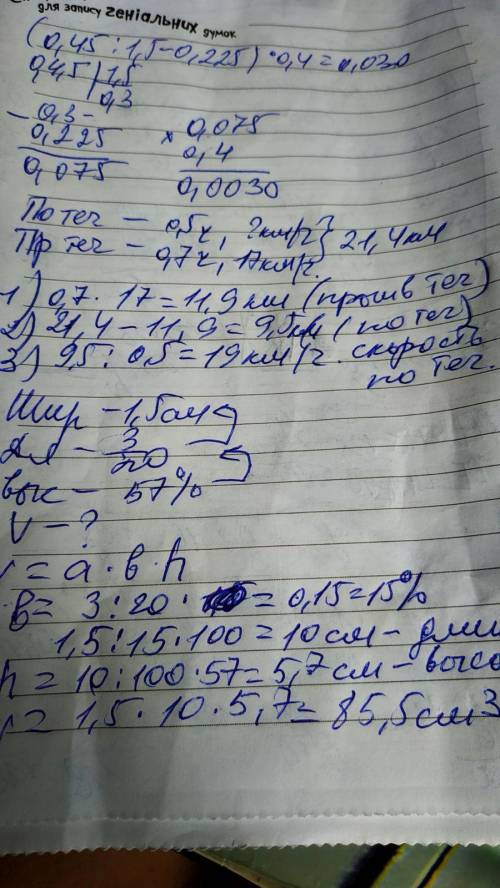 для запису геніальних думок
(0,45 : 1,5 - 0,225) · 0,4 = 0,030
0,4,5 | 1,5
0,3
- 0,3 -
0,225
0,075
× 0,075
0,4
0,0030
По теч - 0,5ч, ? км/ч } 21,4 км
Пр теч - 0,7ч, 17км/ч.
1) 0,7 · 17 = 11,9 км (против теч)
2) 21,4 - 11,9 = 9,5км (по теч)
3) 9,5 : 0,5 = 19 км/ч. скорость
по теч.
Шир - 1,5см
дл - 3/20
выс - 57%
V - ?
V = a · b · h
b = 3 : 20 · = 0,15 = 15%
1,5 : 15 · 100 = 10 см - дли
h = 10 : 100 · 57 = 5,7 см - высо
V = 1,5 · 10 · 5,7 = 85,5 см³